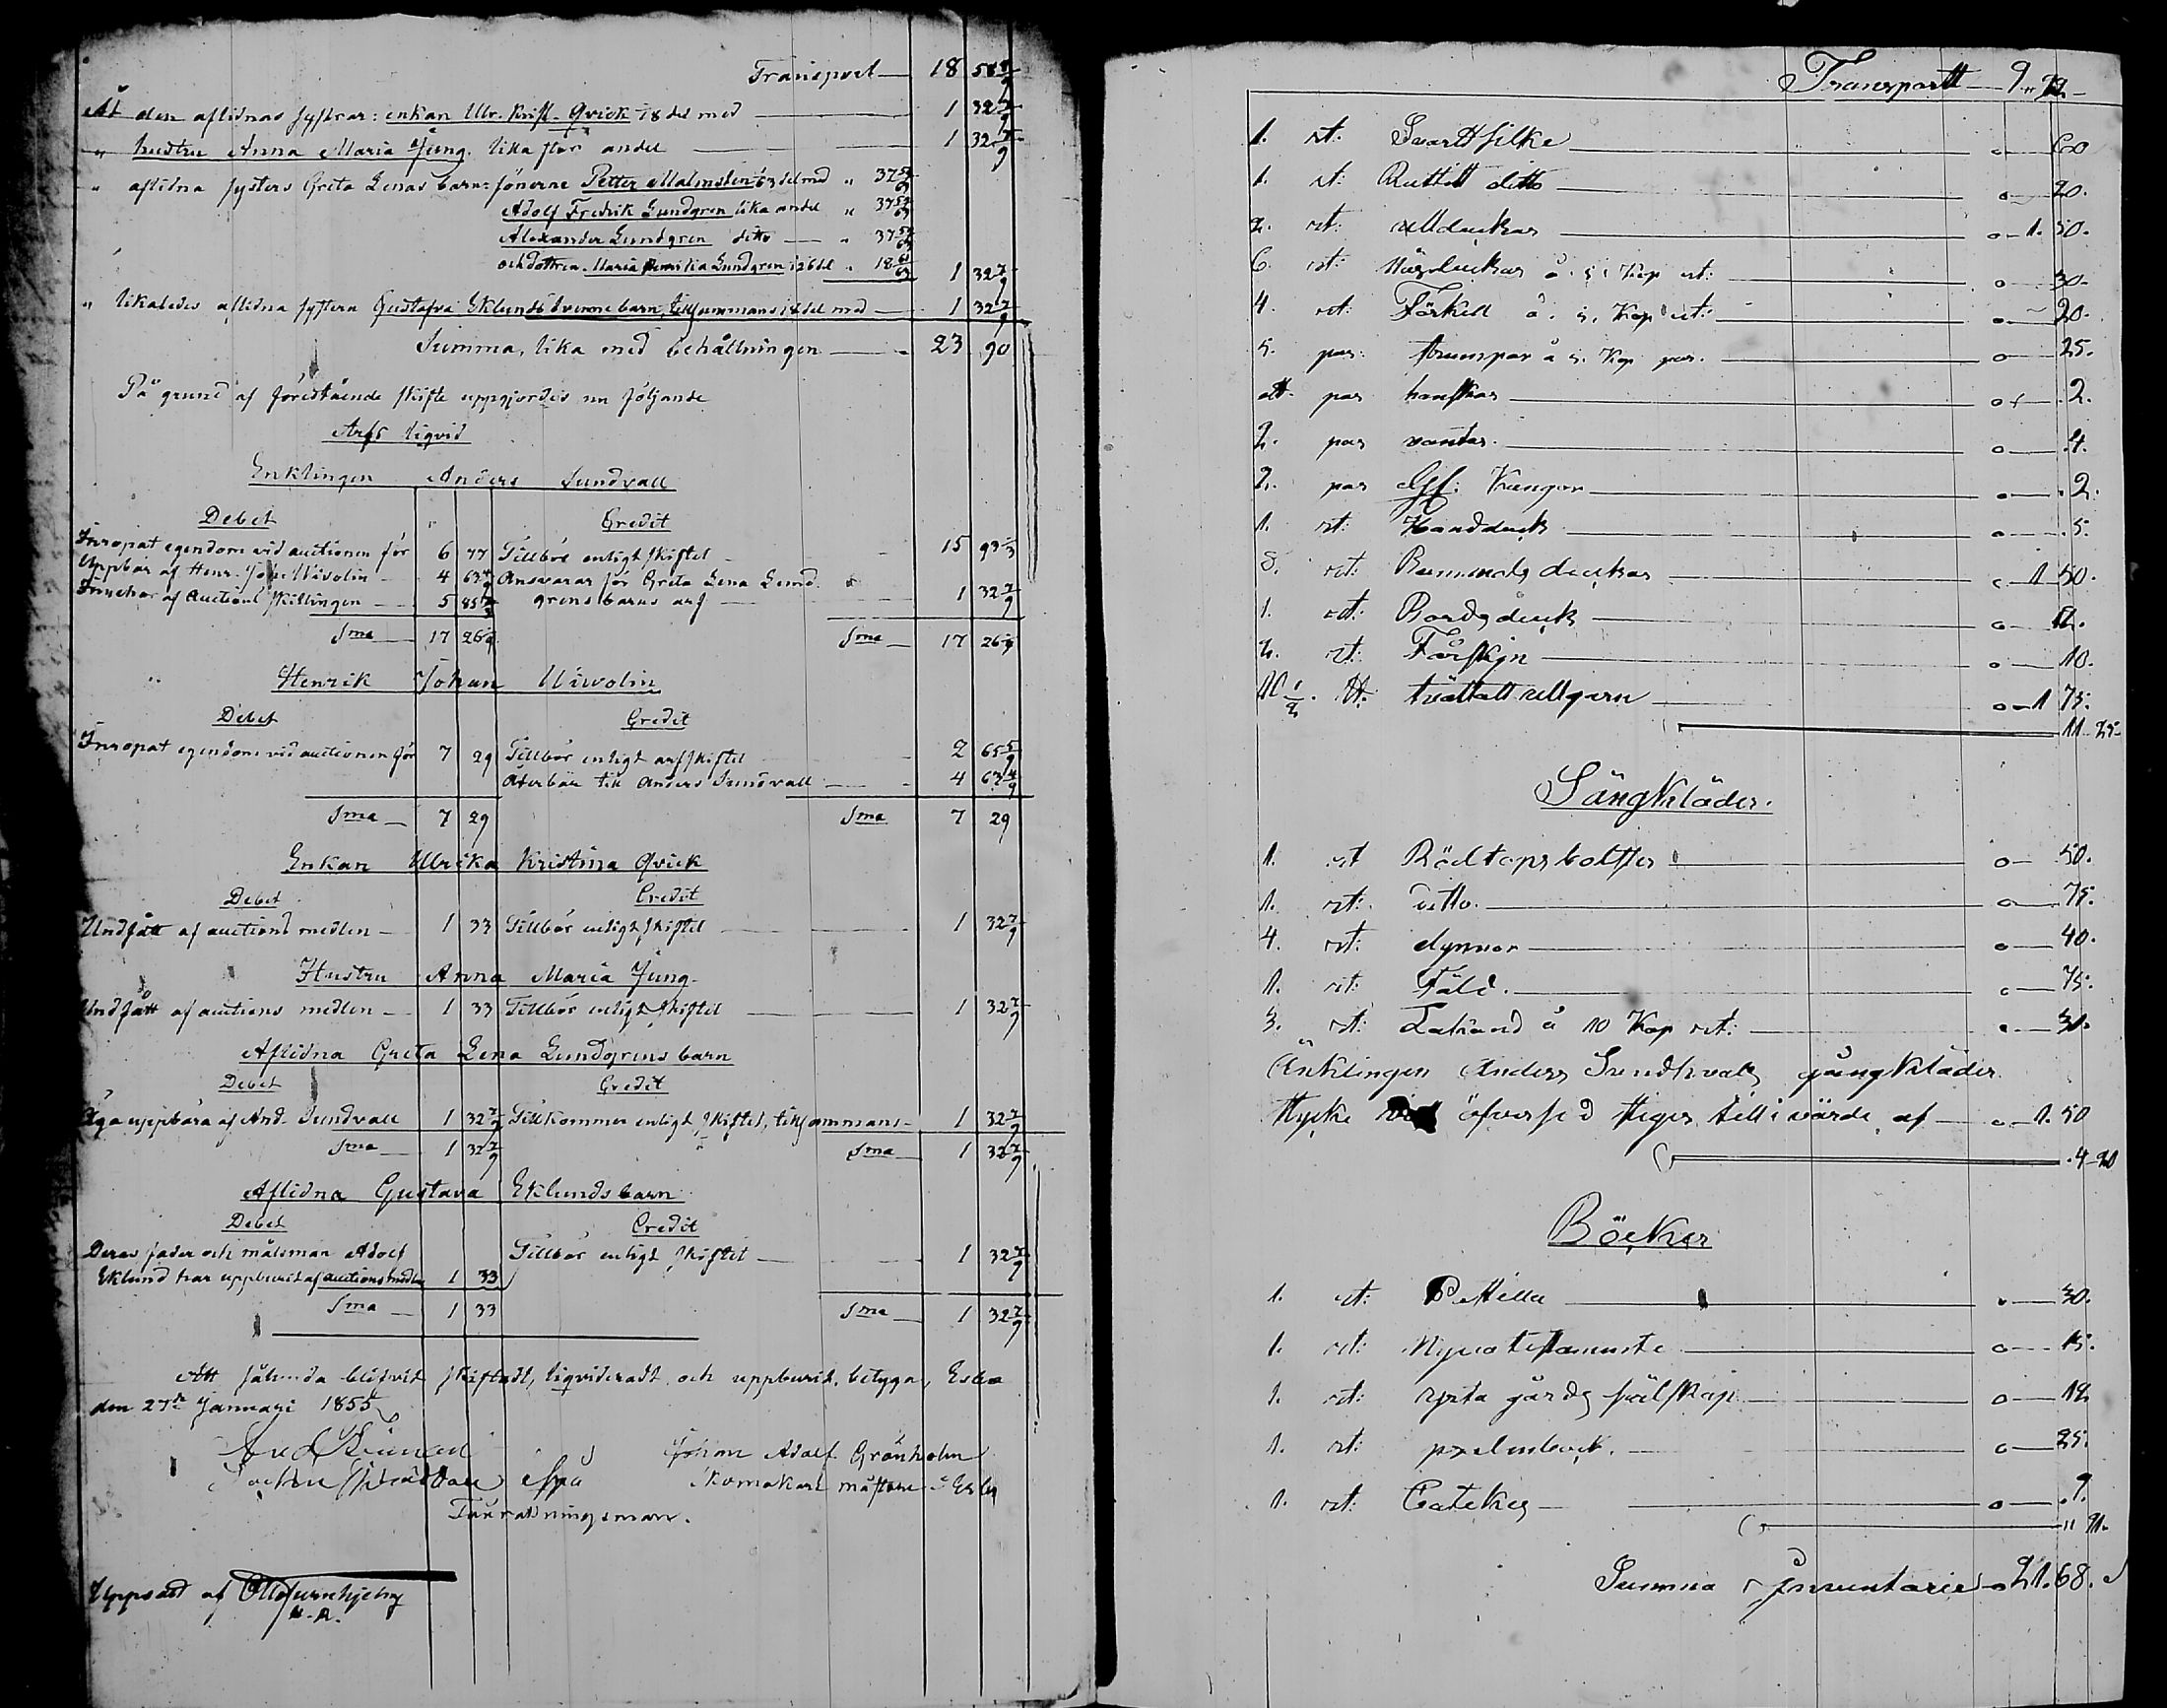 Transport — 18 58 8/9
Åt den aflidnas systrar: enkan Ulr. Krist. Qvick 18 del med — 1 32 7/9
" hustru Anna Maria Jung. lika stor andel — 1 32 7/9
" aflidna systers Greta Lenas barn: sönerne Petter Malmsten 63 del med " 37 59/63
Adolf Fredrik Lundgren lika andel " 37 59/63
Alexander Lundgren ditto — " 37 59/63
och dottren Maria Lundgren 126 del " 18 61/63 1 32 7/9
" likaledes aflidna systern Gustafva Eklunds tvenne barn, tillsammans 18 del med — 1 32 7/9
Summa, lika med behållningen — 23 90
På grund af förestående skifte uppgjordes nu följande
Arfs liqvid
Enklingen Anders Sundvall
Debet Credit
Inropat egendom vid auctionen för 6 77 Tillbör enligt skiftet — 15 93 1/3
Uppbär af Henr. Joh. Uiwolin — 4 63 4/9 Ansvarar för Greta Lena Lund-
Innehar af Auctions skillingen — 5 85 grens barns arf — 1 32 7/9
Sma — 17 26 1/9 Sma — 17 26 1/9
Henrik Johan Uiwolin
Debet Credit
Inropat egendom vid auctionen för 7 29 Tillbör enligt arfskiftet 2 65 5/9
Återbär till Anders Sundvall — 4 63 4/9
Sma — 7 29 Sma 7 29
Enkan Ulrika Kristina Qvick
Debet Credit
Undfått af auctions medlen — 1 33 Tillbör enligt skiftet — 1 32 7/9
Hustru Anna Maria Jung.
Undfått af auctions medlen — 1 33 Tillbör enligt skiftet — 1 32 7/9
Aflidna Greta Lena Lundgrens barn
Debet Credit
Äga uppbära af And. Sundvall 1 32 7/9 Tillkommer enligt skiftet, tillsammans — 1 32 7/9
Sma — 1 32 7/9 Sma — 1 32 7/9
Aflidna Gustava Eklunds barn
Debet Credit
Deras fader och målsman Adolf Tillbör enligt skiftet — 1 32 7/9
Eklund har uppburit af auctions medlen 1 33
Sma — 1 33 Sma — 1 32 7/9
Att sålunda blifvit skiftadt, liqvideradt och uppburit, betyga, Esbo
den 27de Januari 1855
Johan Adolf Grönholm
Skomakare mästare i Esbo
Uppsatt af
Transportt — 9 "
1. st: Svartt silke — 60
1. st: Ruttitt ditto — 20.
2. st: ulldukar — 1. 50.
6. st: Näsdukar à 5 Kop st: — 30.
4. st: Förkell à 5. Kop st: — 20.
5. par: strumpor à 5. Kop par. — 25.
ett par handskar — 2.
2. par vantar — 4.
2. par Kängor — 2.
1. st: Handduk — 5.
8. st: dukar — 1 50.
1. st: Bordsduk — 12.
2. st: Fårskin — 10.
10 1/2 ℔: tvättatt ullgarn — 1 75.
11 25
Sängkläder.
1. st Bolster — 50.
1. st: ditto. — 75.
4. st: dynnor — 40.
1. st: Fäld. — 75.
3. st: Lakand à 10 Kop st: — 30.
Änklingen Anders Sundhvals gångkläder
stycke öfversed stiger till i värde af — 1. 50
4 20
Böcker
1. st: Postilla — 30.
1. st: Nyia testamente — 15.
1. st: sälskap — 12
1. st: psalmbock. — 25.
1. st: Catekes — 9.
" 91.
Summa Inventarie — 21. 68.